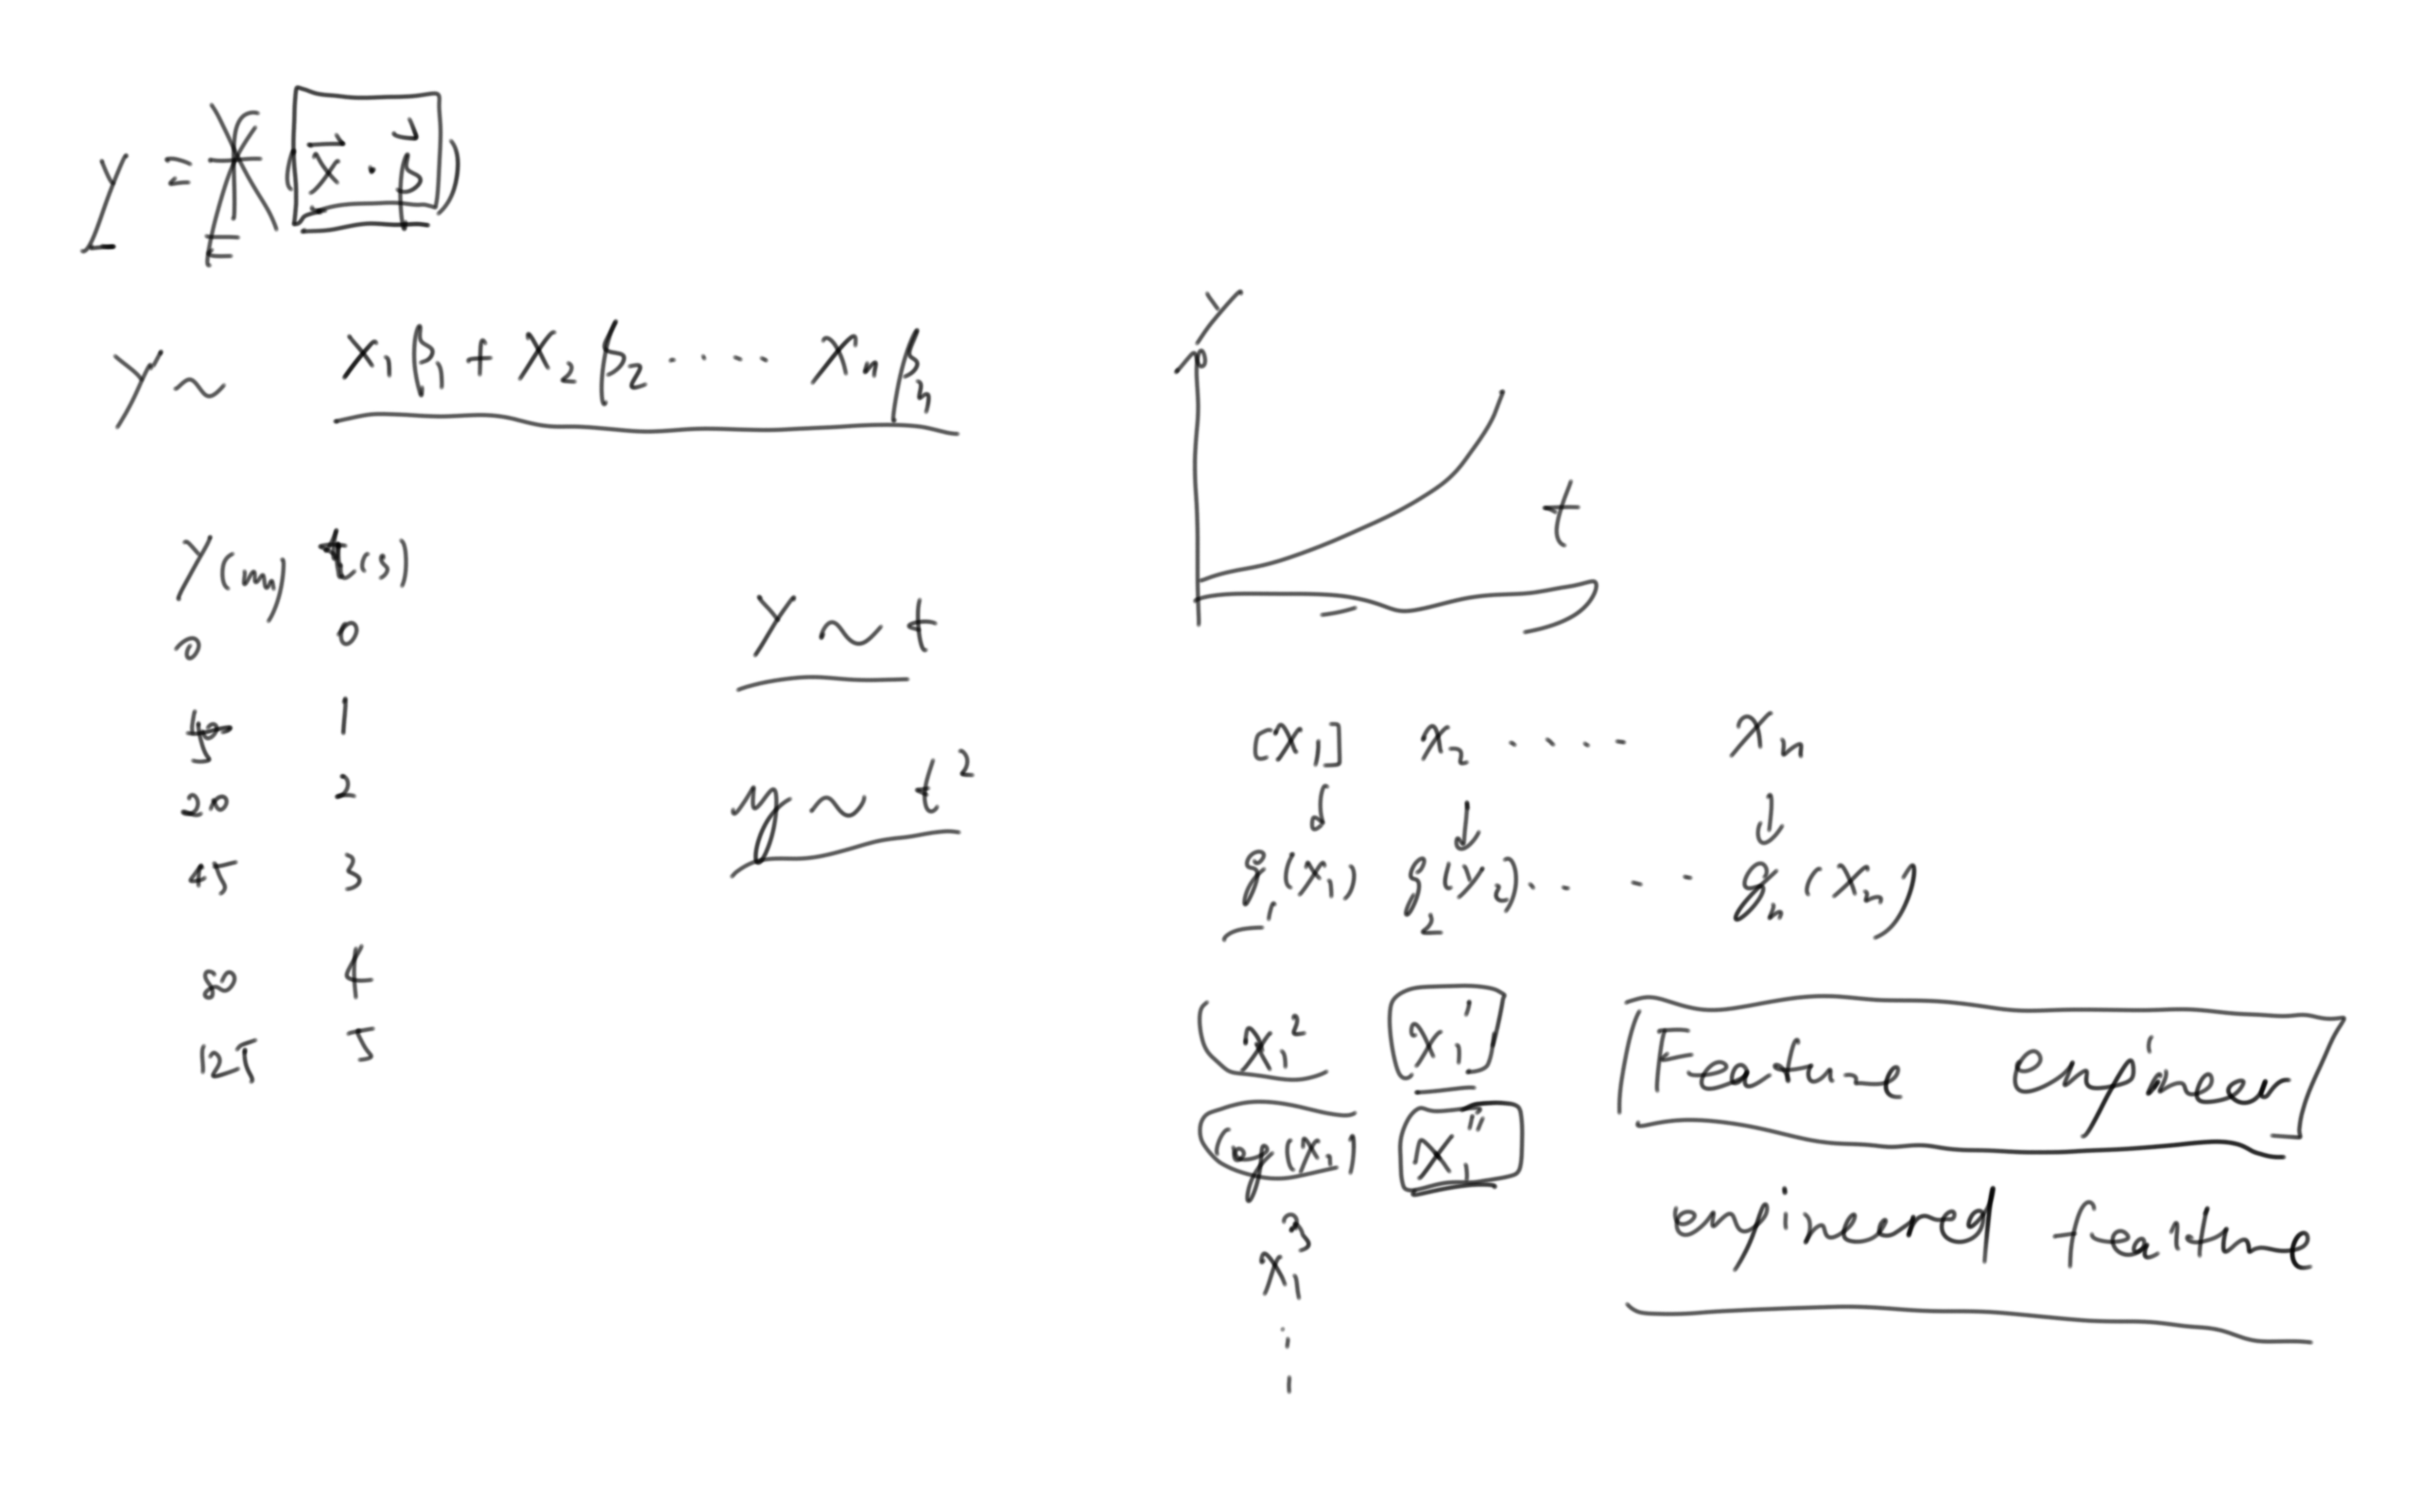 Y = f(x⃗ · β⃗)
Y ~ x₁β₁ + x₂β₂ .... xₙβₙ
Y(m) t(s)
0 0
5 1
20 2
45 3
80 4
125 5
Y ~ t
y ~ t²
Y
t
[x₁] x₂ .... xₙ
g₁(x₁) g₂(x₂) .... gₙ(xₙ)
x₁² x₁'
log(x₁) x₁''
x₁³
Feature engineer
engineered feature